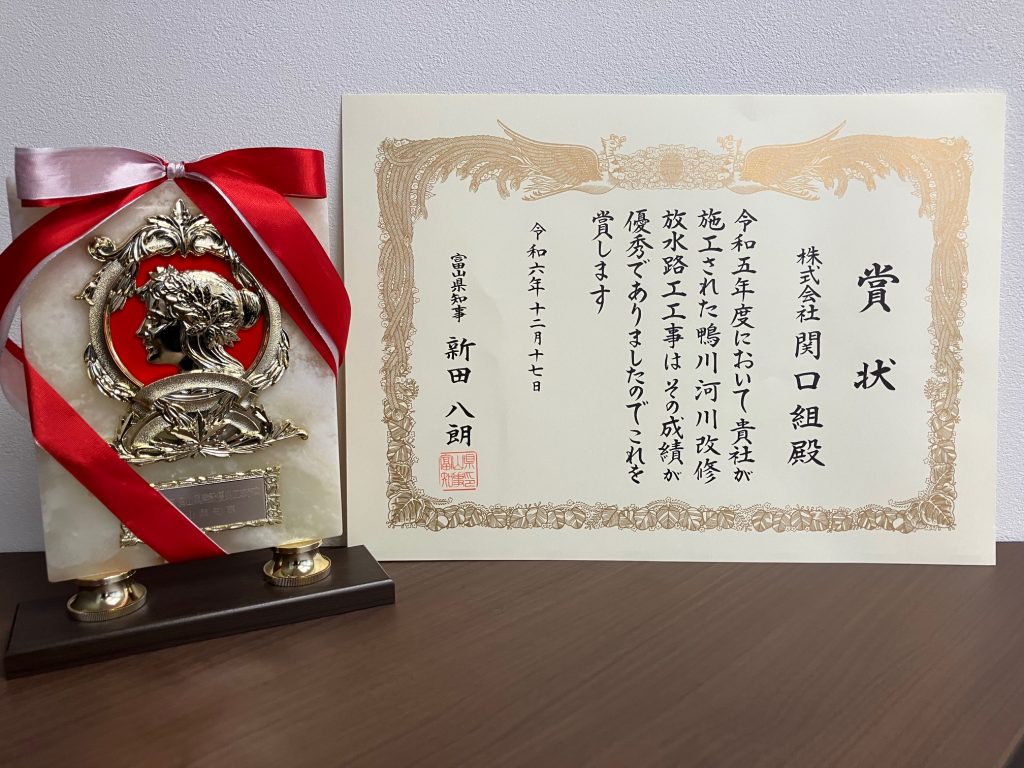 賞状
株式会社 関口組殿
令和五年度において貴社が
施工された鴨川河川改修
放水路工工事は その成績が
優秀でありましたのでこれを
賞します
令和六年十二月十七日
富山県知事 新田 八朗